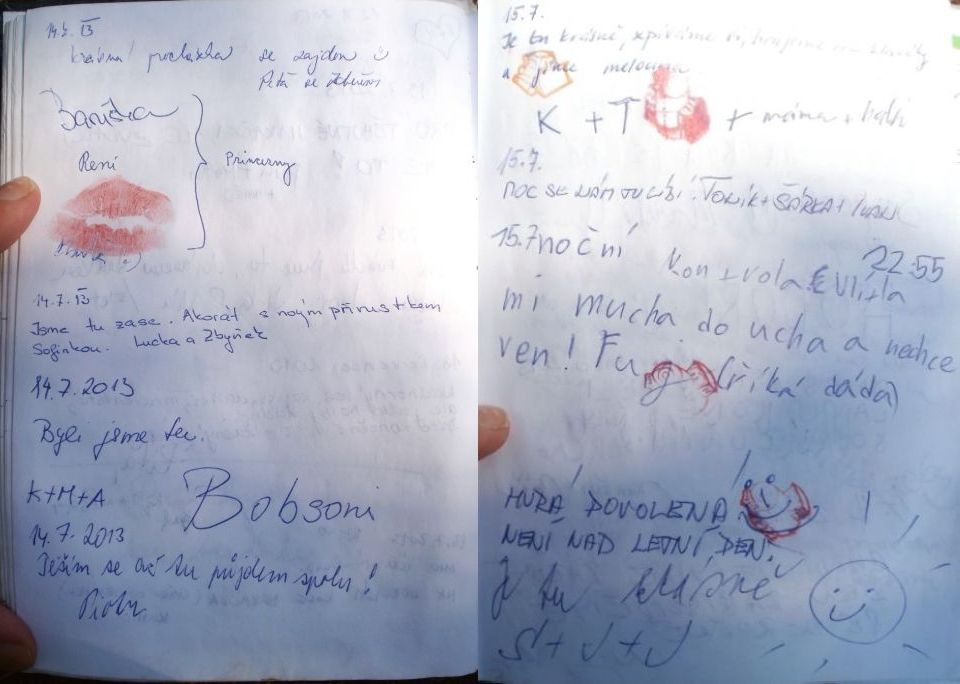 14.7. 13
krásná procházka se zajdou
Bariška
René
Princezny
14.7. 13
Jsme tu zase. Akorát s novým přírustkem
Sofinkou. Lucka a Zbyněk
14.7.2013
Byli jsme tu.
K+M+A
Bobsoni
14.7.2013
Těším se až tu půjdem spolu!
15.7.
Je tu krásně, zpíváme si, hrajeme na
a jíme melouna
K + T + máma +
15.7.
MOC SE NÁM TU LÍBÍ. TONÍK + ŠÁRKA +
15.7 noční kontrola 22:55
Vlítla
mi mucha do ucha a nechce
ven! Fuj (říká dáda)
HURÁ DOVOLENÁ!
NENÍ NAD LETNÍ DEN.
Je tu krásně
S+J+J